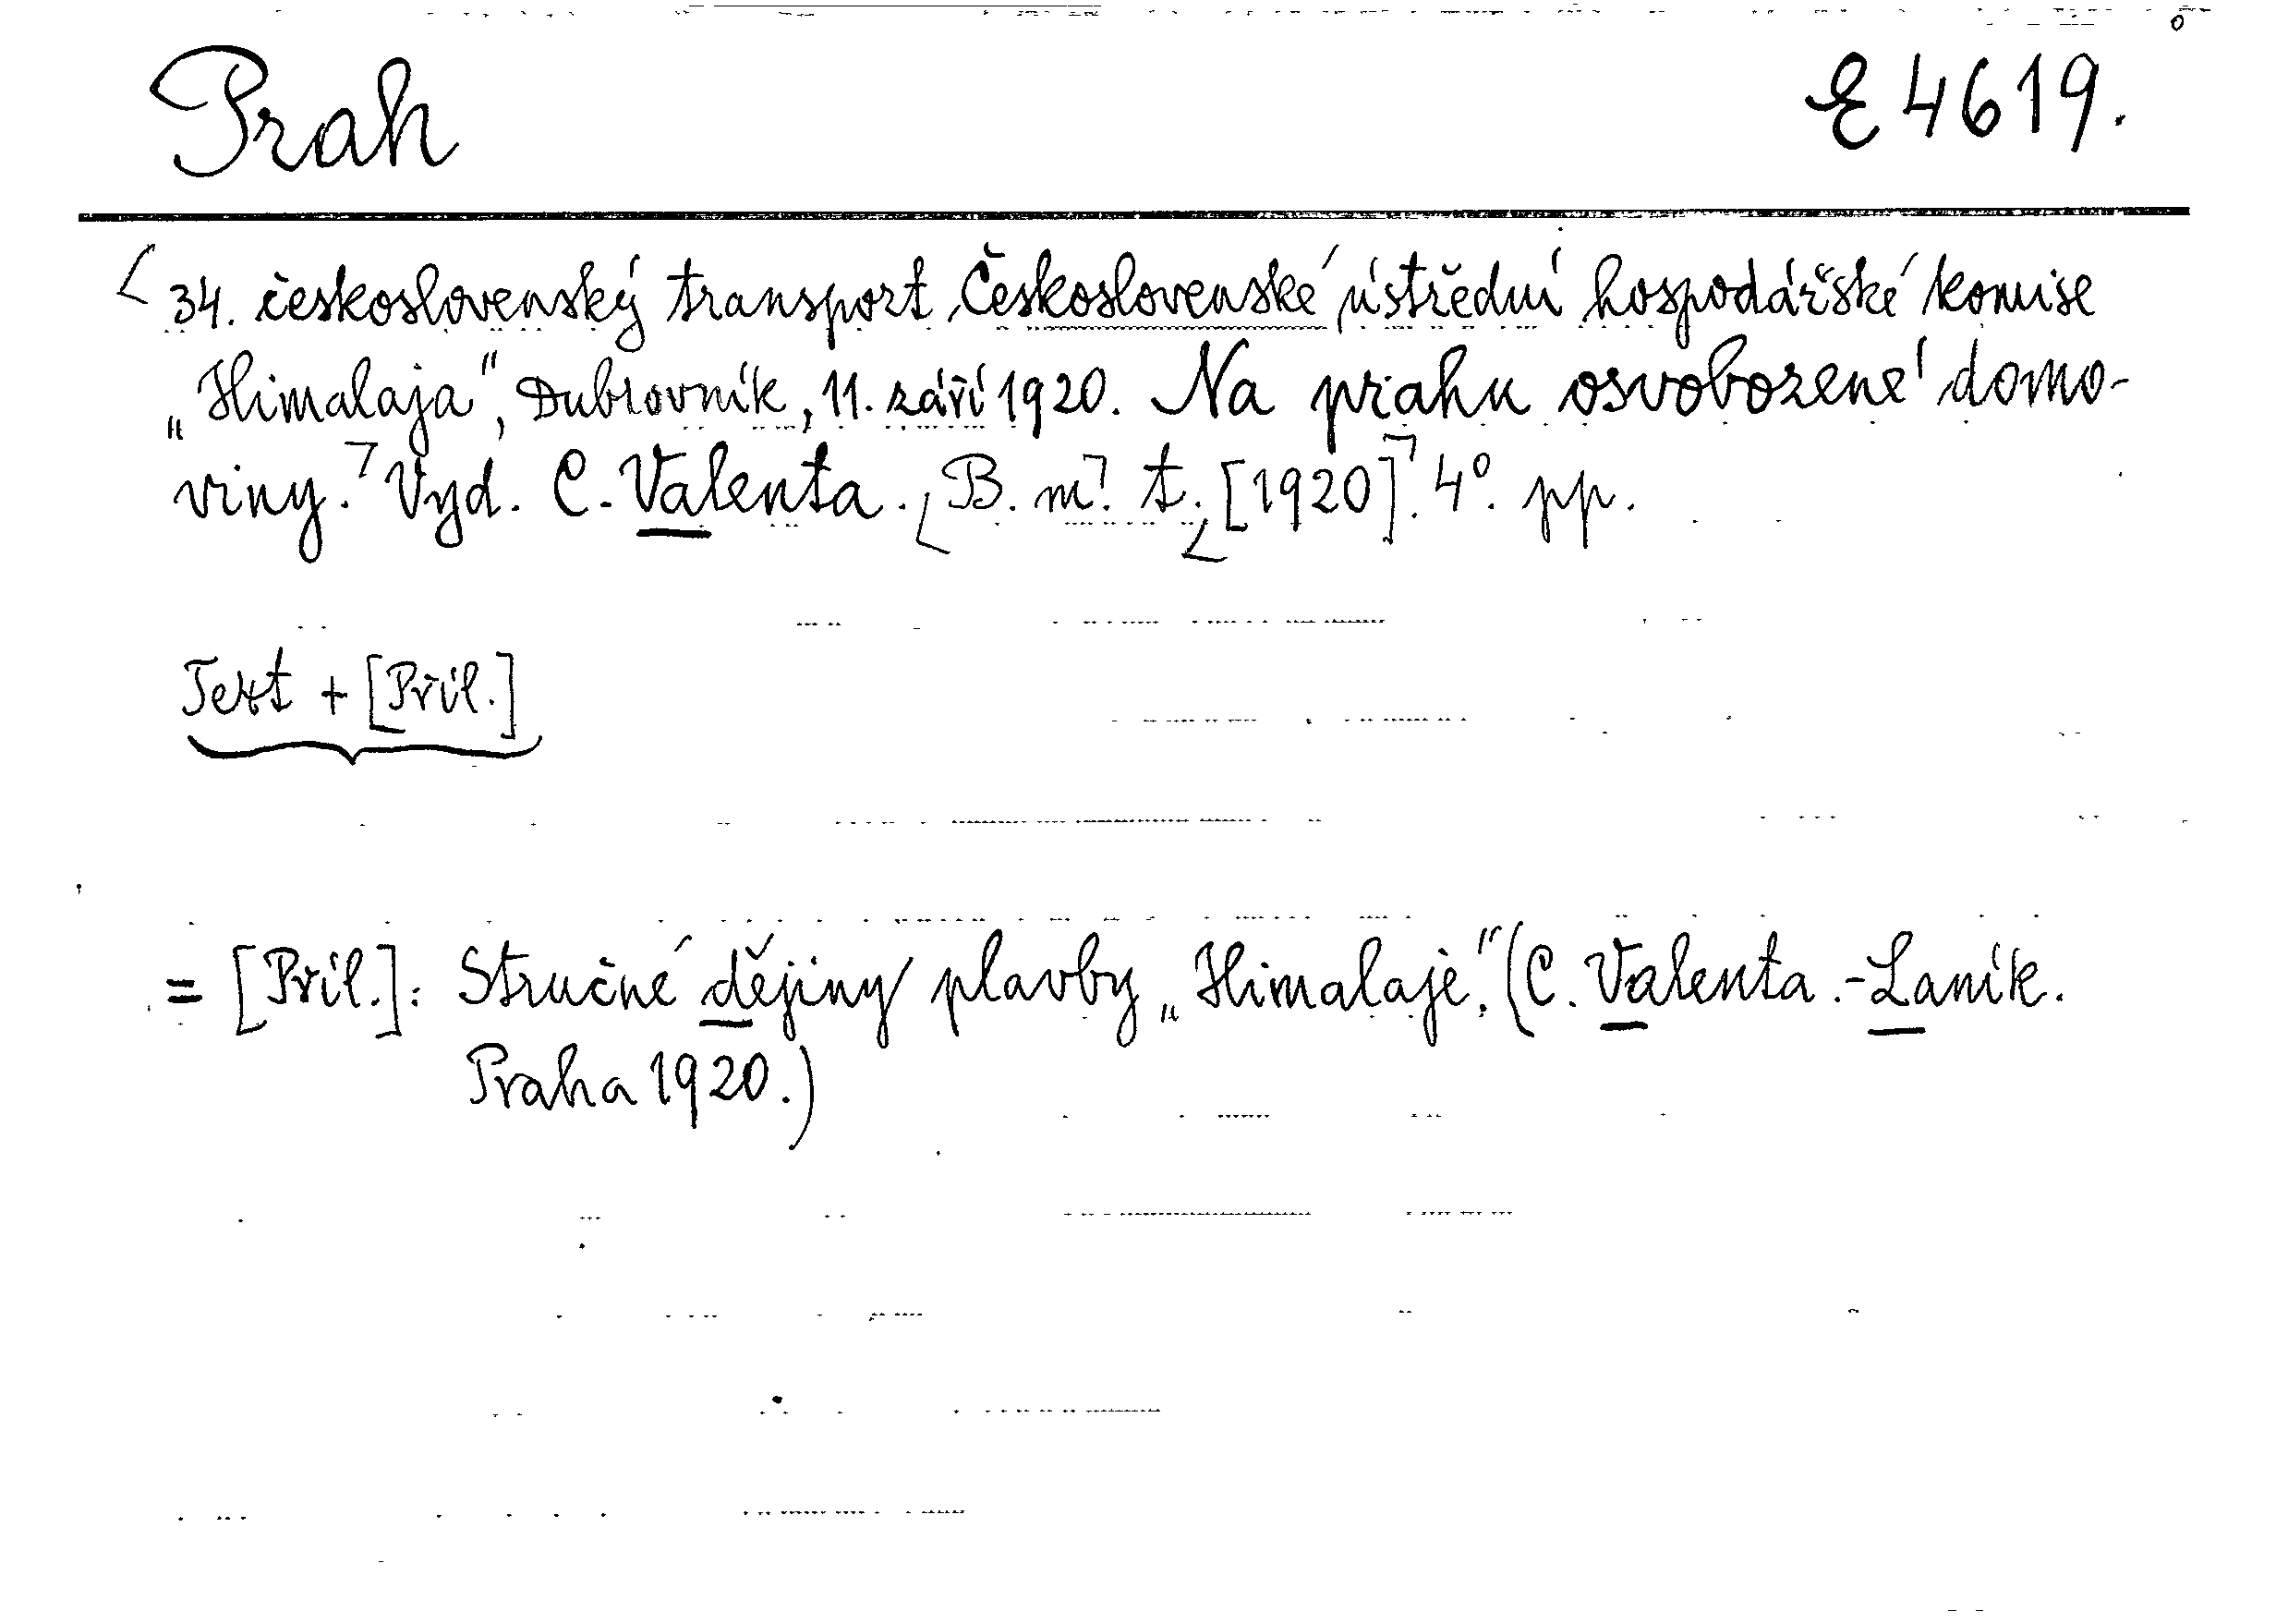 Prah
E 4619.
34. československý transport Československé ústřední hospodářské komise
„Himalaja", Dubrovník, 11. září 1920. Na prahu osvobozené domo-
viny. Vyd. C. Valenta. B. m. t. [1920]. 4°. pp.
Text + [Příl.]
= [Příl.]: Stručné dějiny plavby „Himalaje". (C. Valenta. - Laník.
Praha 1920.)